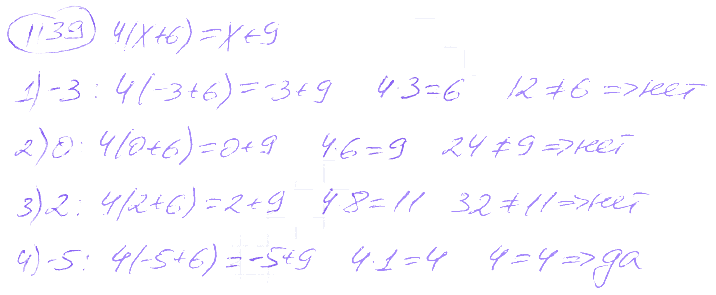 1139 4(x+6)=x+9
1) -3: 4(-3+6)=-3+9 4·3=6 12≠6=>нет
2) 0: 4(0+6)=0+9 4·6=9 24≠9=>нет
3) 2: 4(2+6)=2+9 4·8=11 32≠11=>нет
4) -5: 4(-5+6)=-5+9 4·1=4 4=4=>да